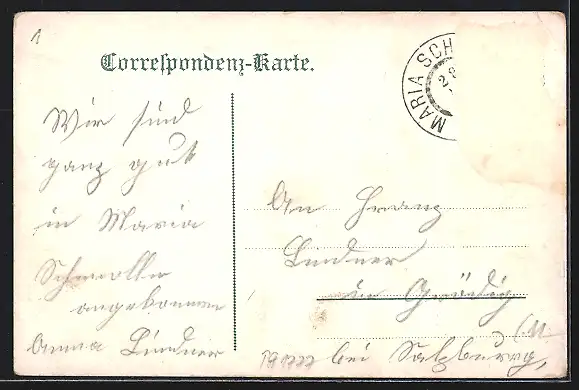 1
Correspondenz-Karte.
MARIA SCH
Wir sind
ganz gut
in Maria
Schmolln
angekommen
Anna Lindner
An Franz
Lindner
in Grödig
bei Salzburg,
191777